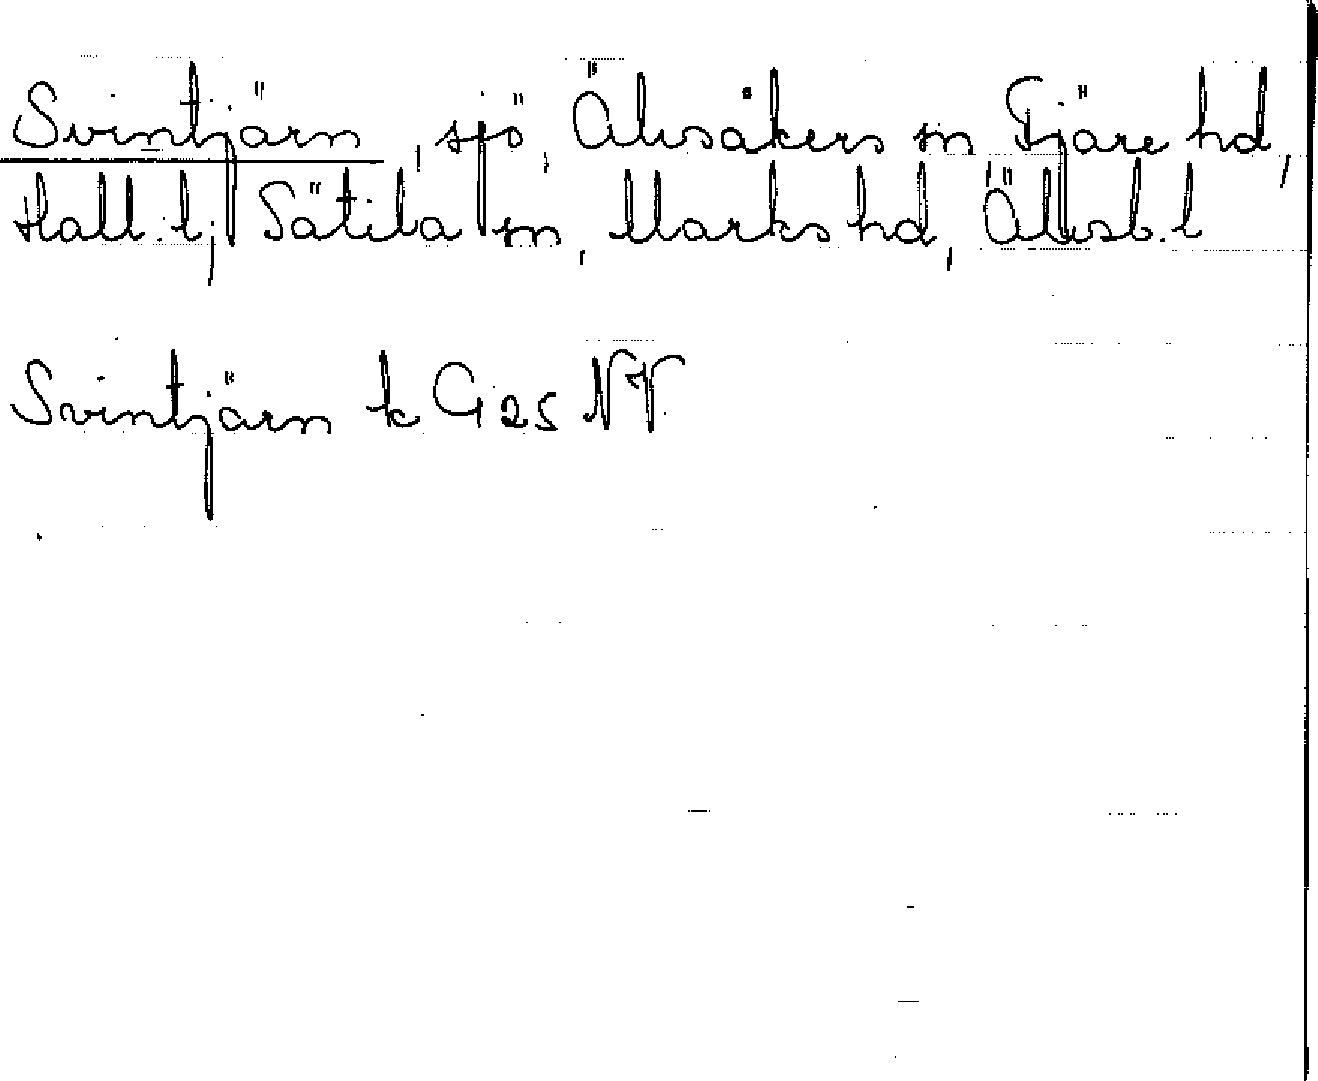 Svintjärn, sjö, Älvsåkers sn Fjäre hd,
Hall. l; Sätila sn, Marks hd, Älvsb. l
Svintjärn k G25 NV